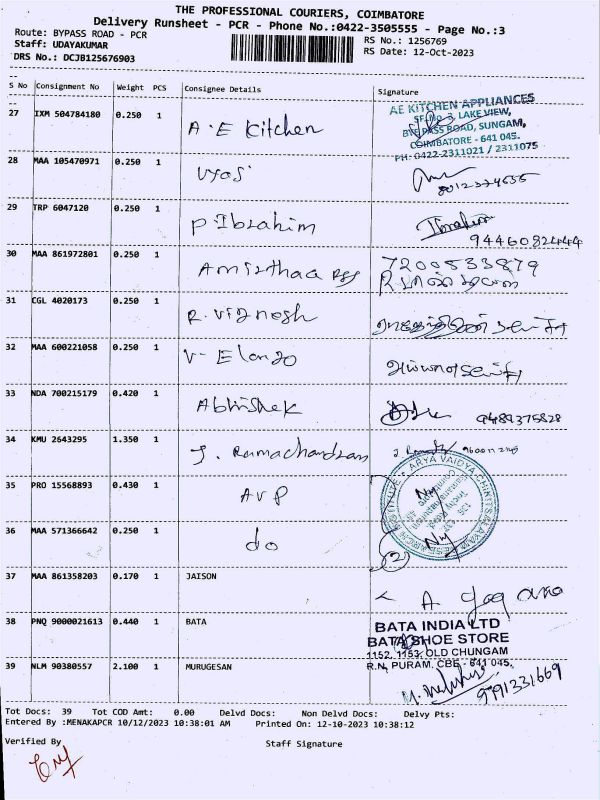 THE PROFESSIONAL COURIERS, COIMBATORE
Delivery Runsheet - PCR - Phone No.:0422-3505555 - Page No.:3
Route: BYPASS ROAD - PCR
RS No.: 1256769
Staff: UDAYAKUMAR
RS Date: 12-Oct-2023
DRS No.: DCJB125676903
S No Consignment No Weight PCS Consignee Details Signature
27 IXM 504784180 0.250 1 A.E Kitchen
AE KITCHEN APPLIANCES
SF.No.3, LAKE VIEW,
BYEPASS ROAD, SUNGAM,
COIMBATORE - 641 045.
PH: 0422-2311021 / 2311075
28 MAA 105470971 0.250 1 Vyos
29 TRP 6047120 0.250 1 P. Ibrahim Ibrahim
9446082444
30 MAA 861972801 0.250 1 Amirthaa
7200533879
31 CGL 4020173 0.250 1 R. Vignesh
32 MAA 600221058 0.250 1 V- Elango
33 NDA 700215179 0.420 1 Abhishek 9489375828
34 KMU 2643295 1.350 1 J. Ramachandran
35 PRO 15568893 0.430 1 AVP
ARYA VAIDYA CHIKITSALAYAM
36 MAA 571366642 0.250 1 do
2
37 MAA 861358203 0.170 1 JAISON
38 PNQ 9000021613 0.440 1 BATA
BATA INDIA LTD
BATA SHOE STORE
1152, 1153, OLD CHUNGAM
R.N. PURAM, CBE - 641 045.
39 NLM 90380557 2.100 1 MURUGESAN
9791331669
Tot Docs: 39 Tot COD Amt: 0.00 Delvd Docs: Non Delvd Docs: Delvy Pts:
Entered By :MENAKAPCR 10/12/2023 10:38:01 AM Printed On: 12-10-2023 10:38:12
Verified By
Staff Signature